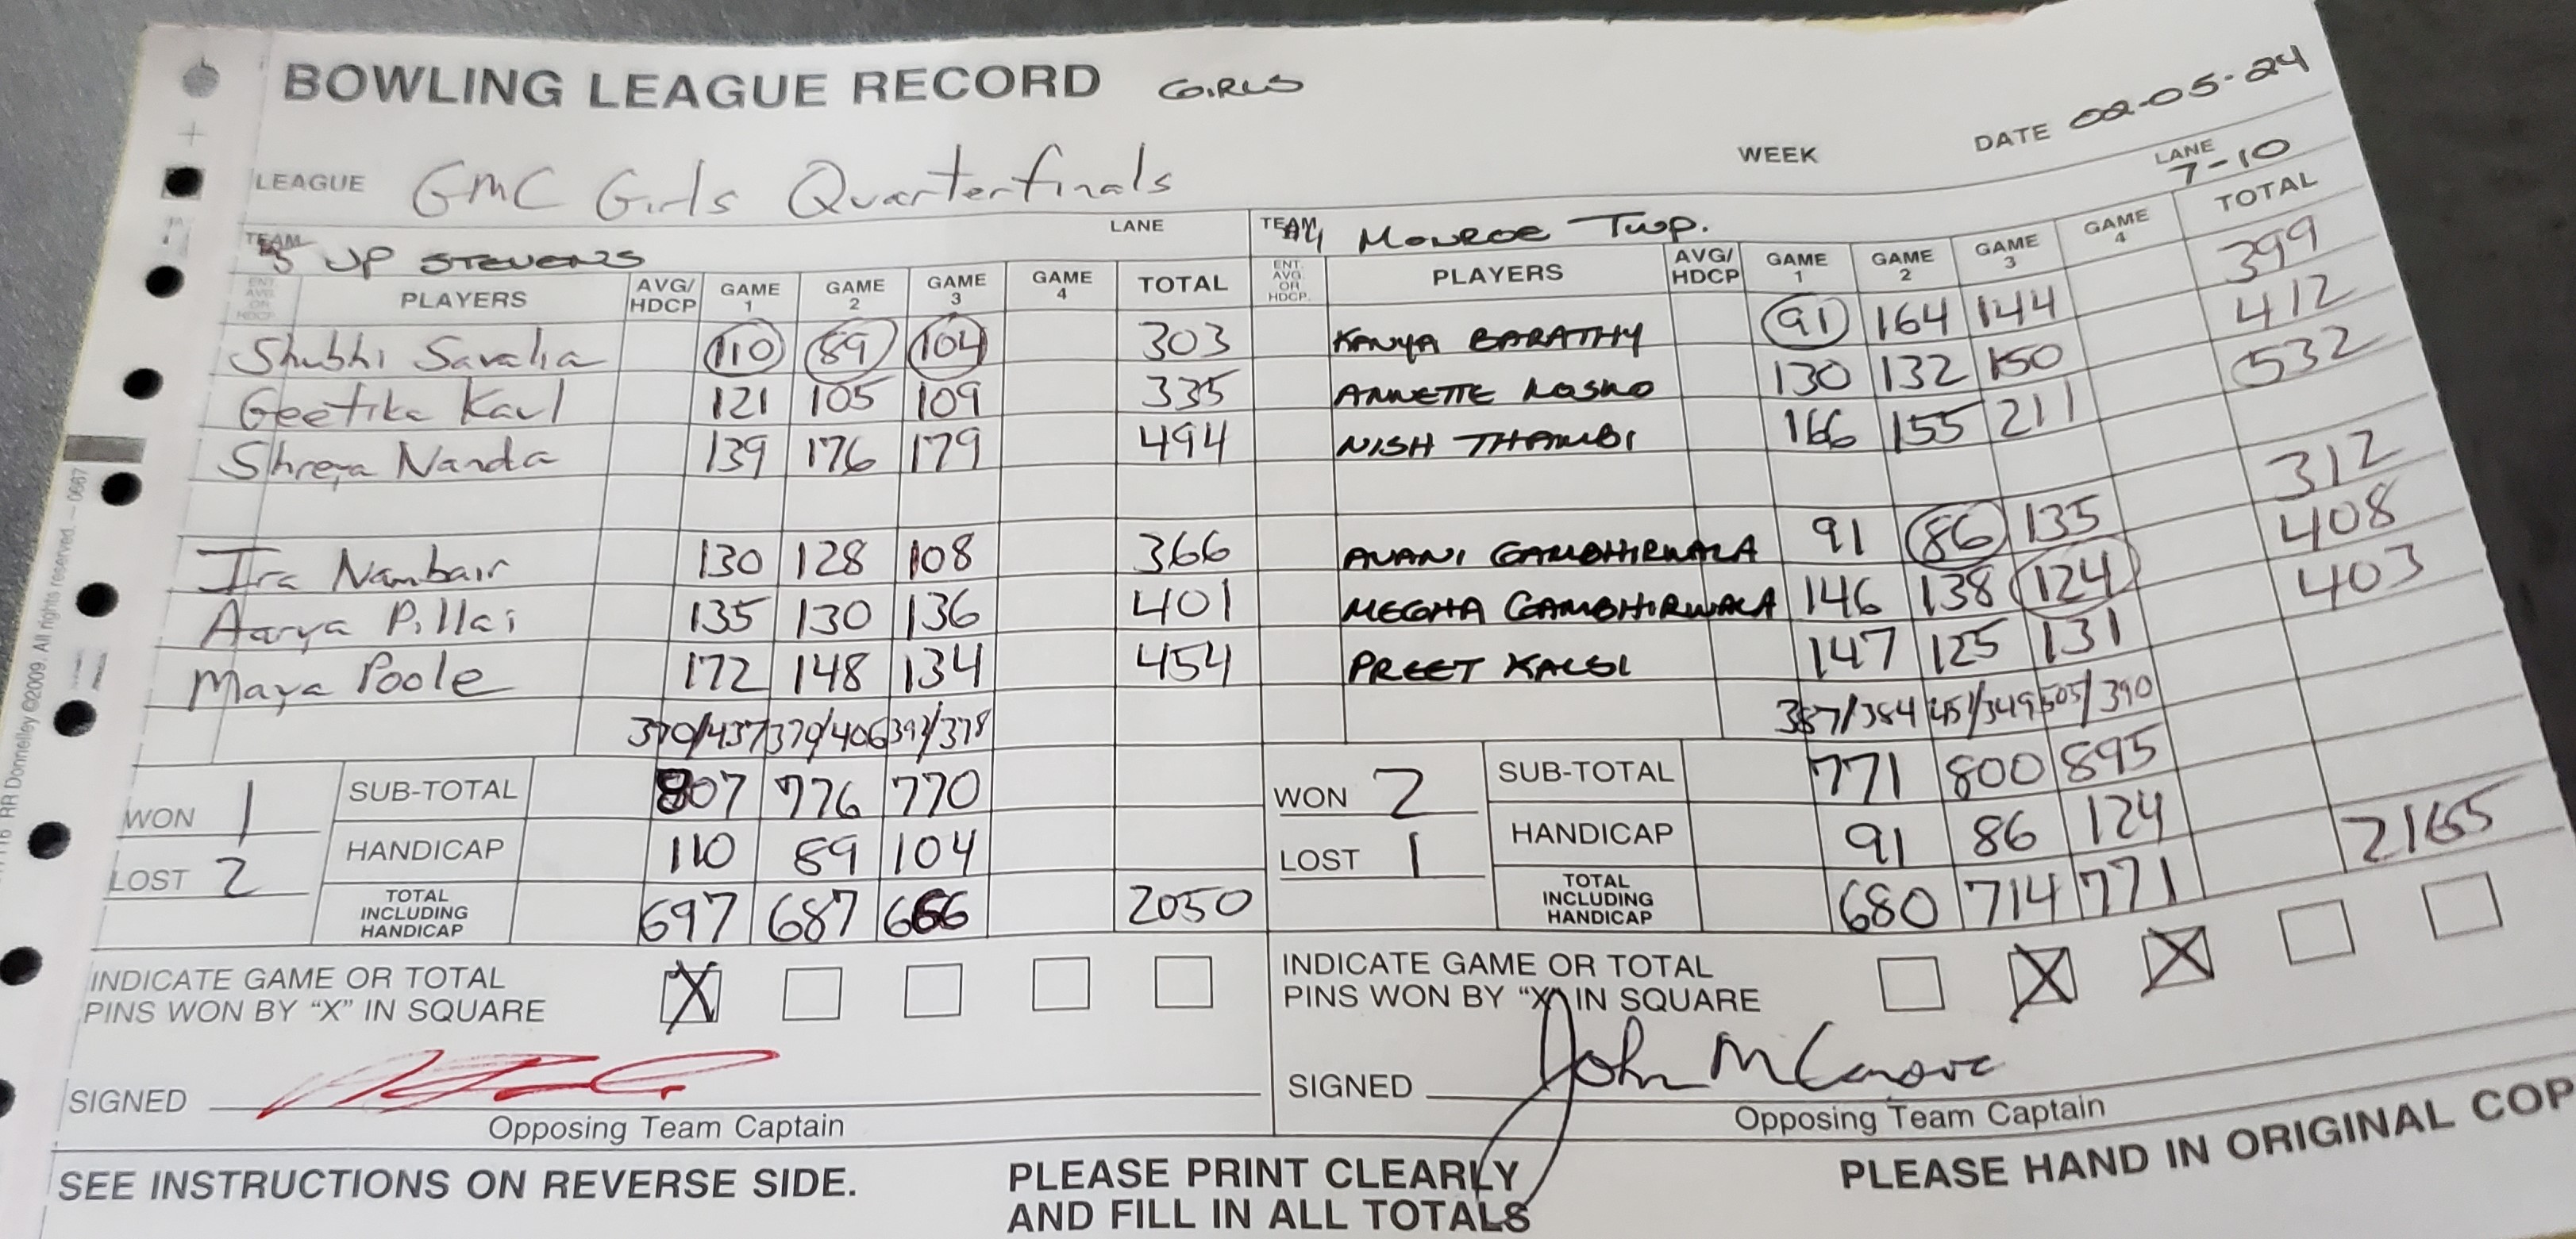 BOWLING LEAGUE RECORD GIRLS
WEEK DATE 02-05-24
LEAGUE GMC Girls Quarterfinals LANE 7-10
TEAM JP STEVENS LANE
ENT. AVG. OR HDCP. PLAYERS AVG/HDCP GAME 1 GAME 2 GAME 3 GAME 4 TOTAL
Shubhi Savalia 110 89 104 303
Geetika Kaul 121 105 109 335
Shreya Nanda 139 176 179 494
Ira Nambair 130 128 108 366
Aarya Pillai 135 130 136 401
Maya Poole 172 148 134 454
370/437 370/406 392/378
WON 1 SUB-TOTAL 807 776 770
LOST 2 HANDICAP 110 89 104
TOTAL INCLUDING HANDICAP 697 687 666 2050
INDICATE GAME OR TOTAL
PINS WON BY “X” IN SQUARE X
SIGNED
Opposing Team Captain
TEAM #4 MONROE TWP.
ENT. AVG. OR HDCP. PLAYERS AVG/HDCP GAME 1 GAME 2 GAME 3 GAME 4 TOTAL
KANYA BARATHY 91 164 144 399
ANNETTE LOSKO 130 132 150 412
NISH THAMBI 166 155 211 532
AVANI GAMBHIRWALA 91 86 135 312
MEGHA GAMBHIRWALA 146 138 124 408
PREET KALSI 147 125 131 403
387/384 451/349 505/390
WON 2 SUB-TOTAL 771 800 895
LOST 1 HANDICAP 91 86 124
TOTAL INCLUDING HANDICAP 680 714 771 2165
INDICATE GAME OR TOTAL
PINS WON BY “X” IN SQUARE X X
SIGNED John
Opposing Team Captain
SEE INSTRUCTIONS ON REVERSE SIDE.
PLEASE PRINT CLEARLY
AND FILL IN ALL TOTALS
PLEASE HAND IN ORIGINAL COP
RR Donnelley ©2009. All rights reserved. – 0667